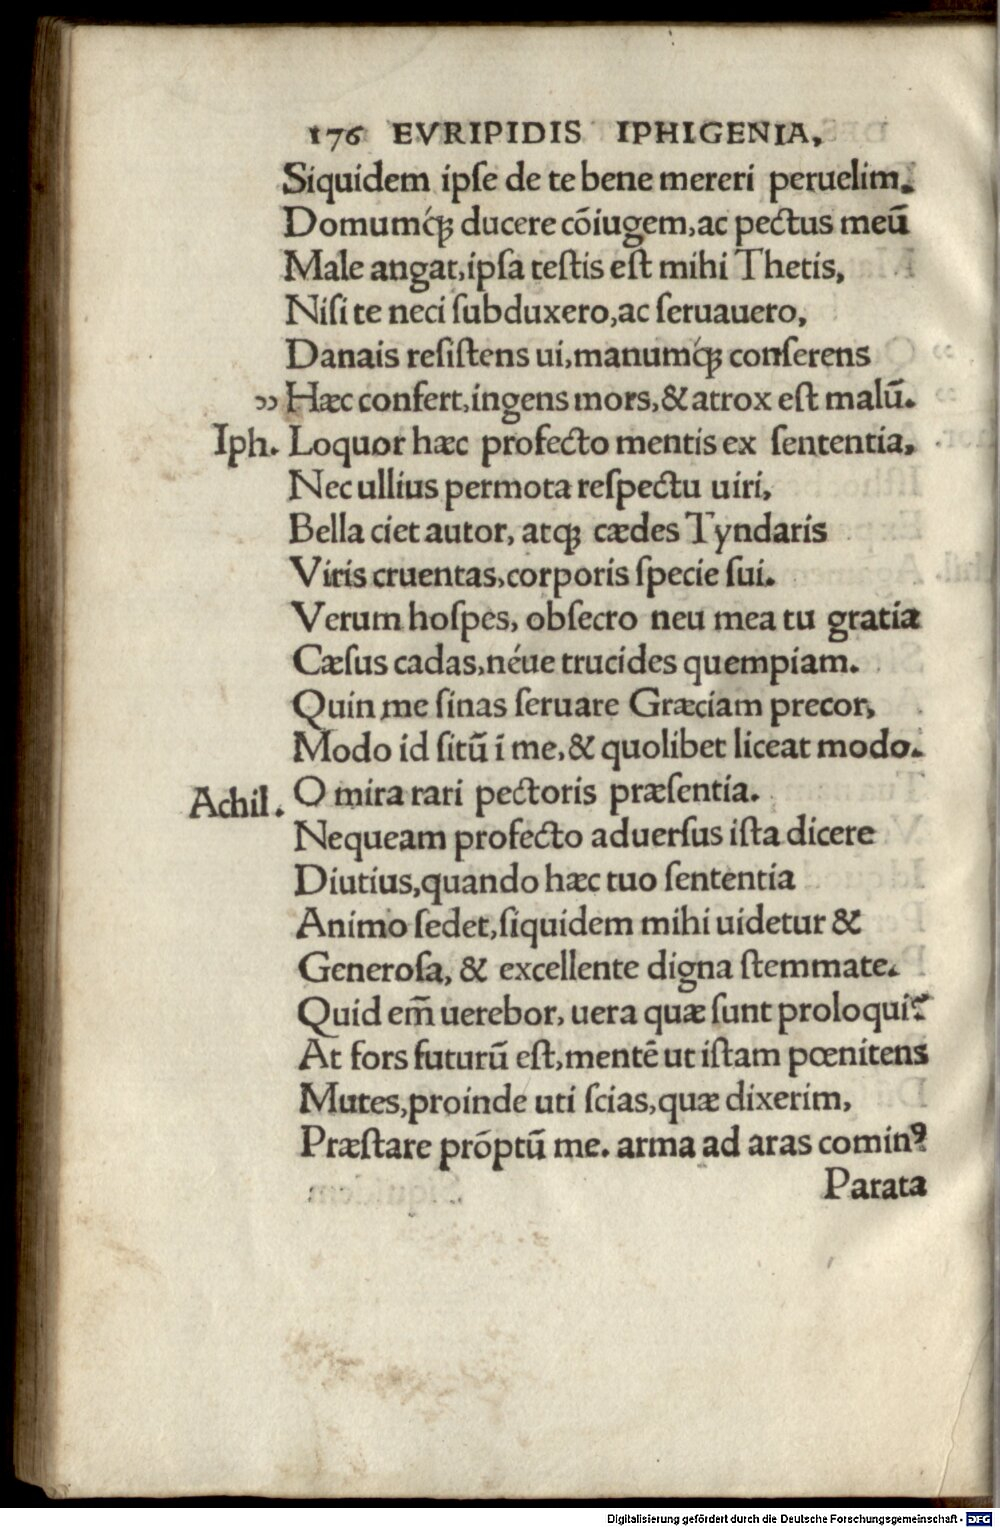 176 EVRIPIDIS IPHIGENIA,
Siquidem ipſe de te bene mereri peruelim.
Domumq́ꝫ ducere cõiugem, ac pectus meũ
Male angat, ipſa teſtis eſt mihi Thetis,
Niſi te neci ſubduxero, ac ſeruauero,
Danais reſiſtens ui, manumq́ꝫ conſerens
„ Hæc confert, ingens mors, & atrox eſt malũ.
Iph. Loquor hæc profecto mentis ex ſententia,
Nec ullius permota reſpectu uiri,
Bella ciet autor, atqꝫ cædes Tyndaris
Viris cruentas, corporis ſpecie ſui.
Verum hoſpes, obſecro neu mea tu gratia
Cæſus cadas, néue trucides quempiam.
Quin me ſinas ſeruare Græciam precor,
Modo id ſitũ ĩ me, & quolibet liceat modo.
Achil. O mira rari pectoris præſentia.
Nequeam profecto aduerſus iſta dicere
Diutius, quando hæc tuo ſententia
Animo ſedet, ſiquidem mihi uidetur &
Generoſa, & excellente digna ſtemmate.
Quid em̃ uerebor, uera quæ ſunt proloqui?
At fors futurũ eſt, mentẽ ut iſtam pœnitens
Mutes, proinde uti ſcias, quæ dixerim,
Præſtare prõptũ me. arma ad aras comin⁹
Parata
Digitalisierung gefördert durch die Deutsche Forschungsgemeinschaft - DFG